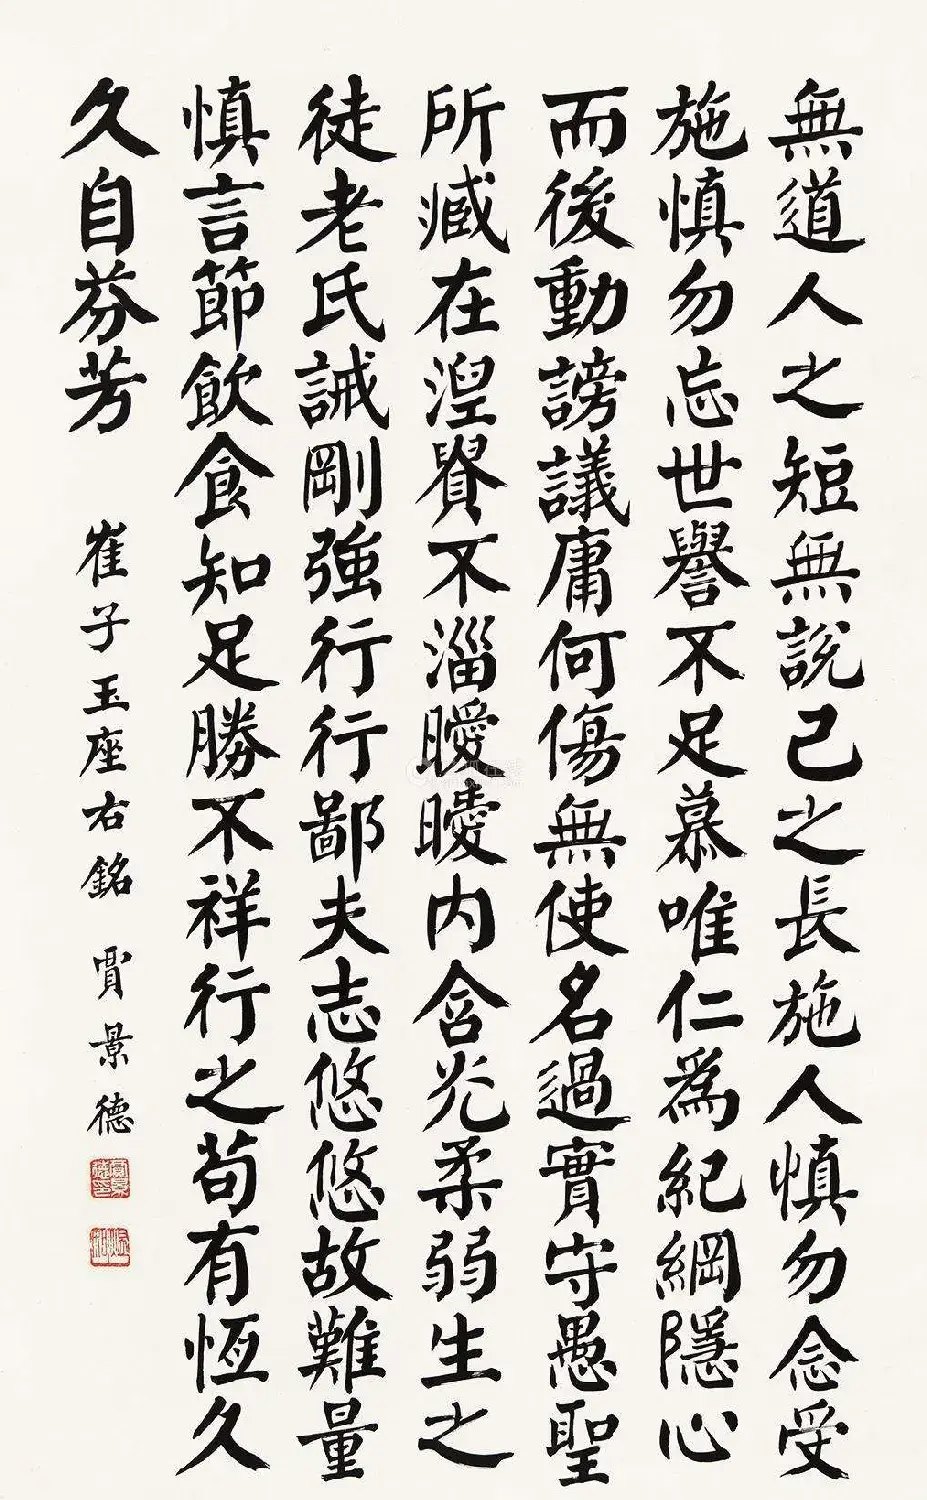 無道人之短無說己之長施人慎勿念受
施慎勿忘世譽不足慕唯仁為紀綱隱心
而後動謗議庸何傷無使名過實守愚聖
所臧在涅貴不淄曖曖内含光柔弱生之
徒老氏誡剛強行行鄙夫志悠悠故難量
慎言節飲食知足勝不祥行之苟有恆久
久自芬芳
崔子玉座右銘 賈景德